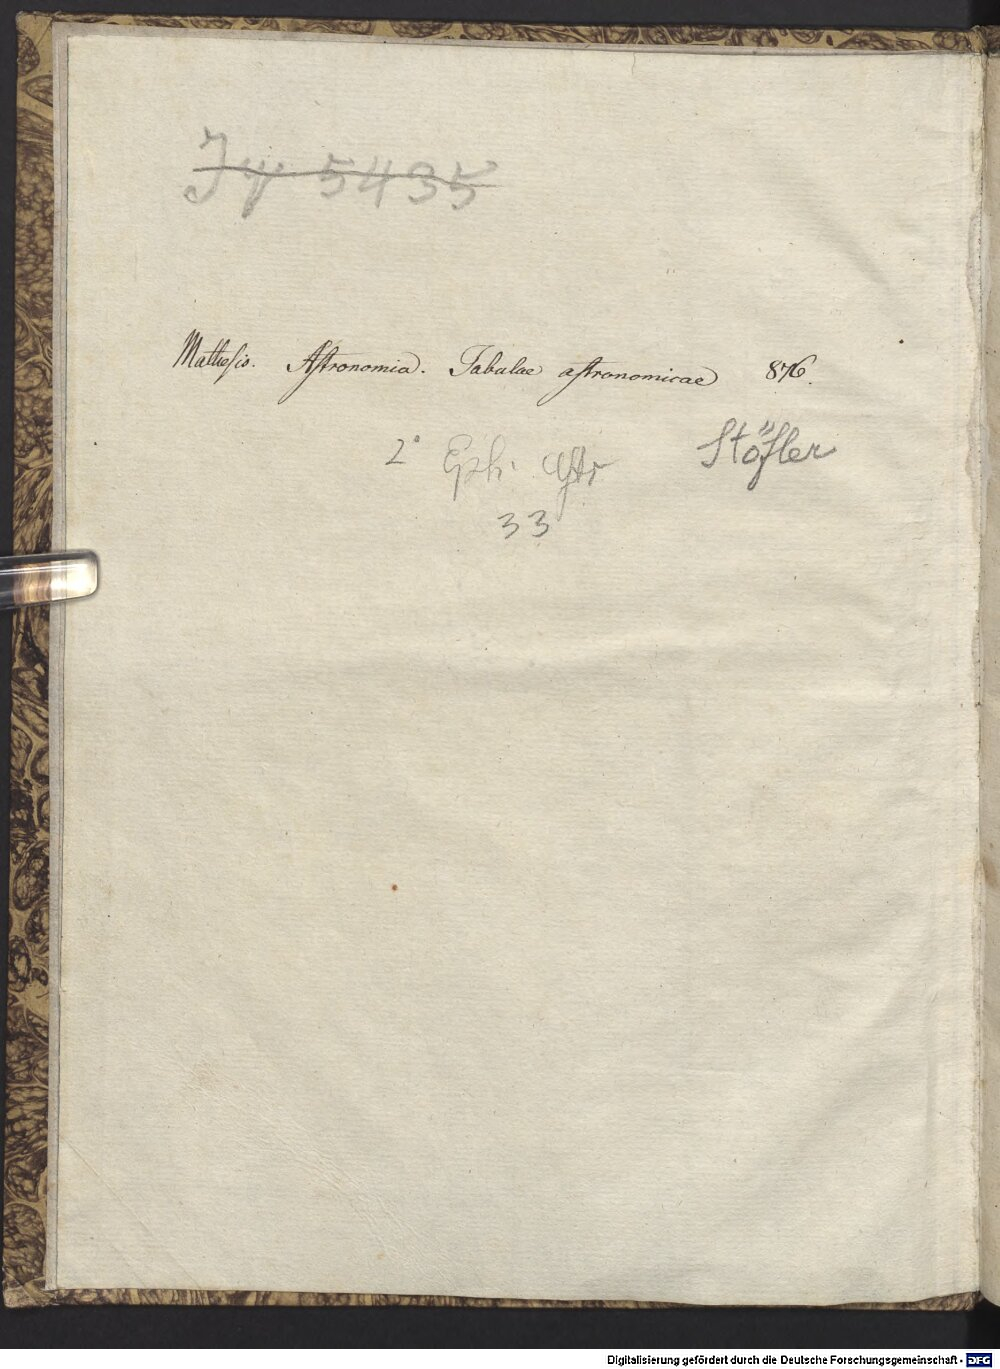 5435
Mathesis. Astronomia. Tabulae astronomicae 876.
2° Eph. astr Stöfler
33
Digitalisierung gefördert durch die Deutsche Forschungsgemeinschaft - DFG